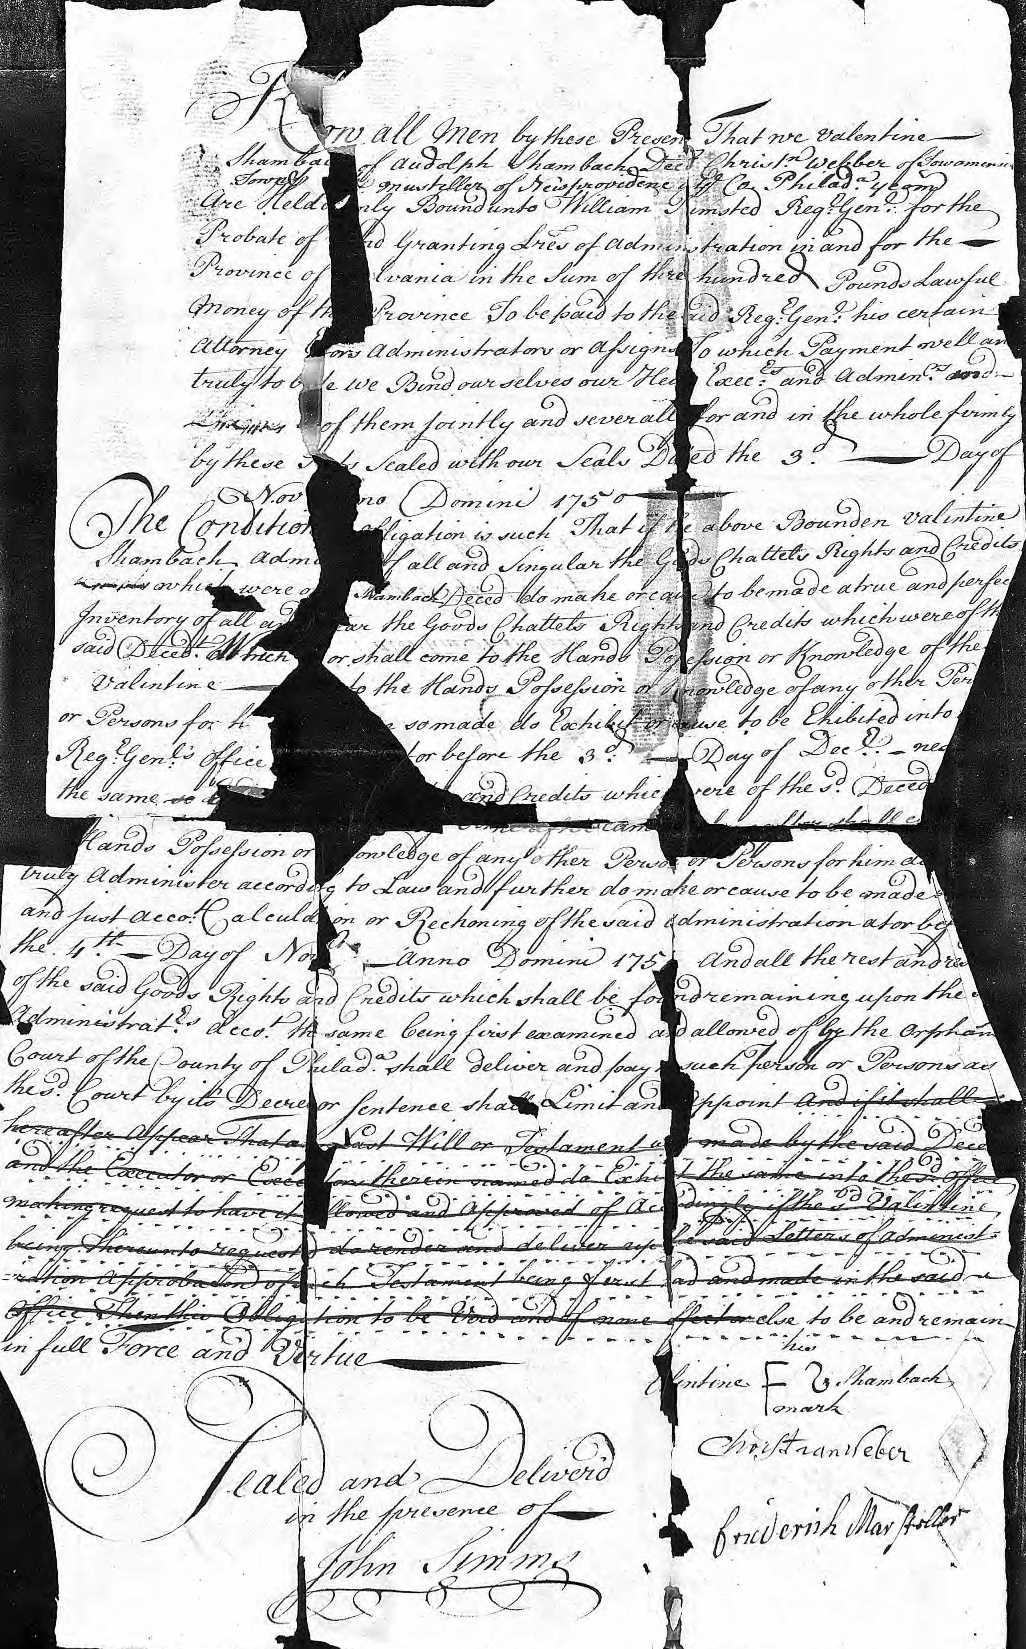 Know all Men by these Presen That we Valentine
Shambac of Audolph Shambach Decd Christn Webber of Towamenin
Town musteller of Neisprovidene Co Philada yeomn
Are Held mly Bound unto William Plumsted Regr Genl for the
Probate of nd Granting Lres of Administration in and for the
Province of lvania in the Sum of thre hundred Pounds Lawful
Money of th Province To be paid to the aid Regr Genl his certain
Attorney tors Administrators or Assigns To which Payment well an
truly to b e we Bind our selves our Hei Execrs and Adminrs and
of them Jointly and severall for and in the whole firmly
by these ts Sealed with our Seals Dated the 3d Day of
Nov no Domini 1750
The Condition bligation is such That if the above Bounden Valentine
Shambach Adm f all and Singular the Goods Chattels Rights and Credits
which were o Shambach Deced do make or cau to be made a true and perfec
Inventory of all an lar the Goods Chattels Rights and Credits which were of th
said Deced Which or shall come to the Hands Possession or Knowledge of the
Valentine to the Hands Possession or Knowledge of any other Per
or Persons for h so made do Exhibit or cause to be Exhibited into
Regr Genls Office t or before the 3d Day of Decr ne
the same and Credits which were of the sd Deced
shall c
Hands Possession or Knowledge of any other Person or Persons for him d
truly Administer according to Law and further do make or cause to be made
and Just Accot Calculation or Reckoning of the said Administration at or bef
the 4th Day of Novr Anno Domini 175 And all the rest and res
of the said Goods Rights and Credits which shall be found remaining upon the
Administratrs Accot the same being first examined and allowed of by the Orphan
Court of the County of Philada shall deliver and pay such Person or Persons as
the sd Court by its Decree or Sentence shall Limit and Appoint And if it shall
hereafter Appear That a Last Will or Testament was made by the said Dece
and the Executor or Executors therein named do Exhibit the same into the sd Office
making request to have it allowed and Approved of Accordingly if the sd Valentine
being thereunto requested do render and deliver up the said Letters of Administ=
=ration Approbation of such Testament being first had and made in the said
Office Then this Obligation to be Void and of none effect or else to be and remain
in full Force and Virtue
his
lentine Shambach
mark
Christian Weber
Sealed and Deliver'd
in the presence of
friderich Marsteller
John Simms